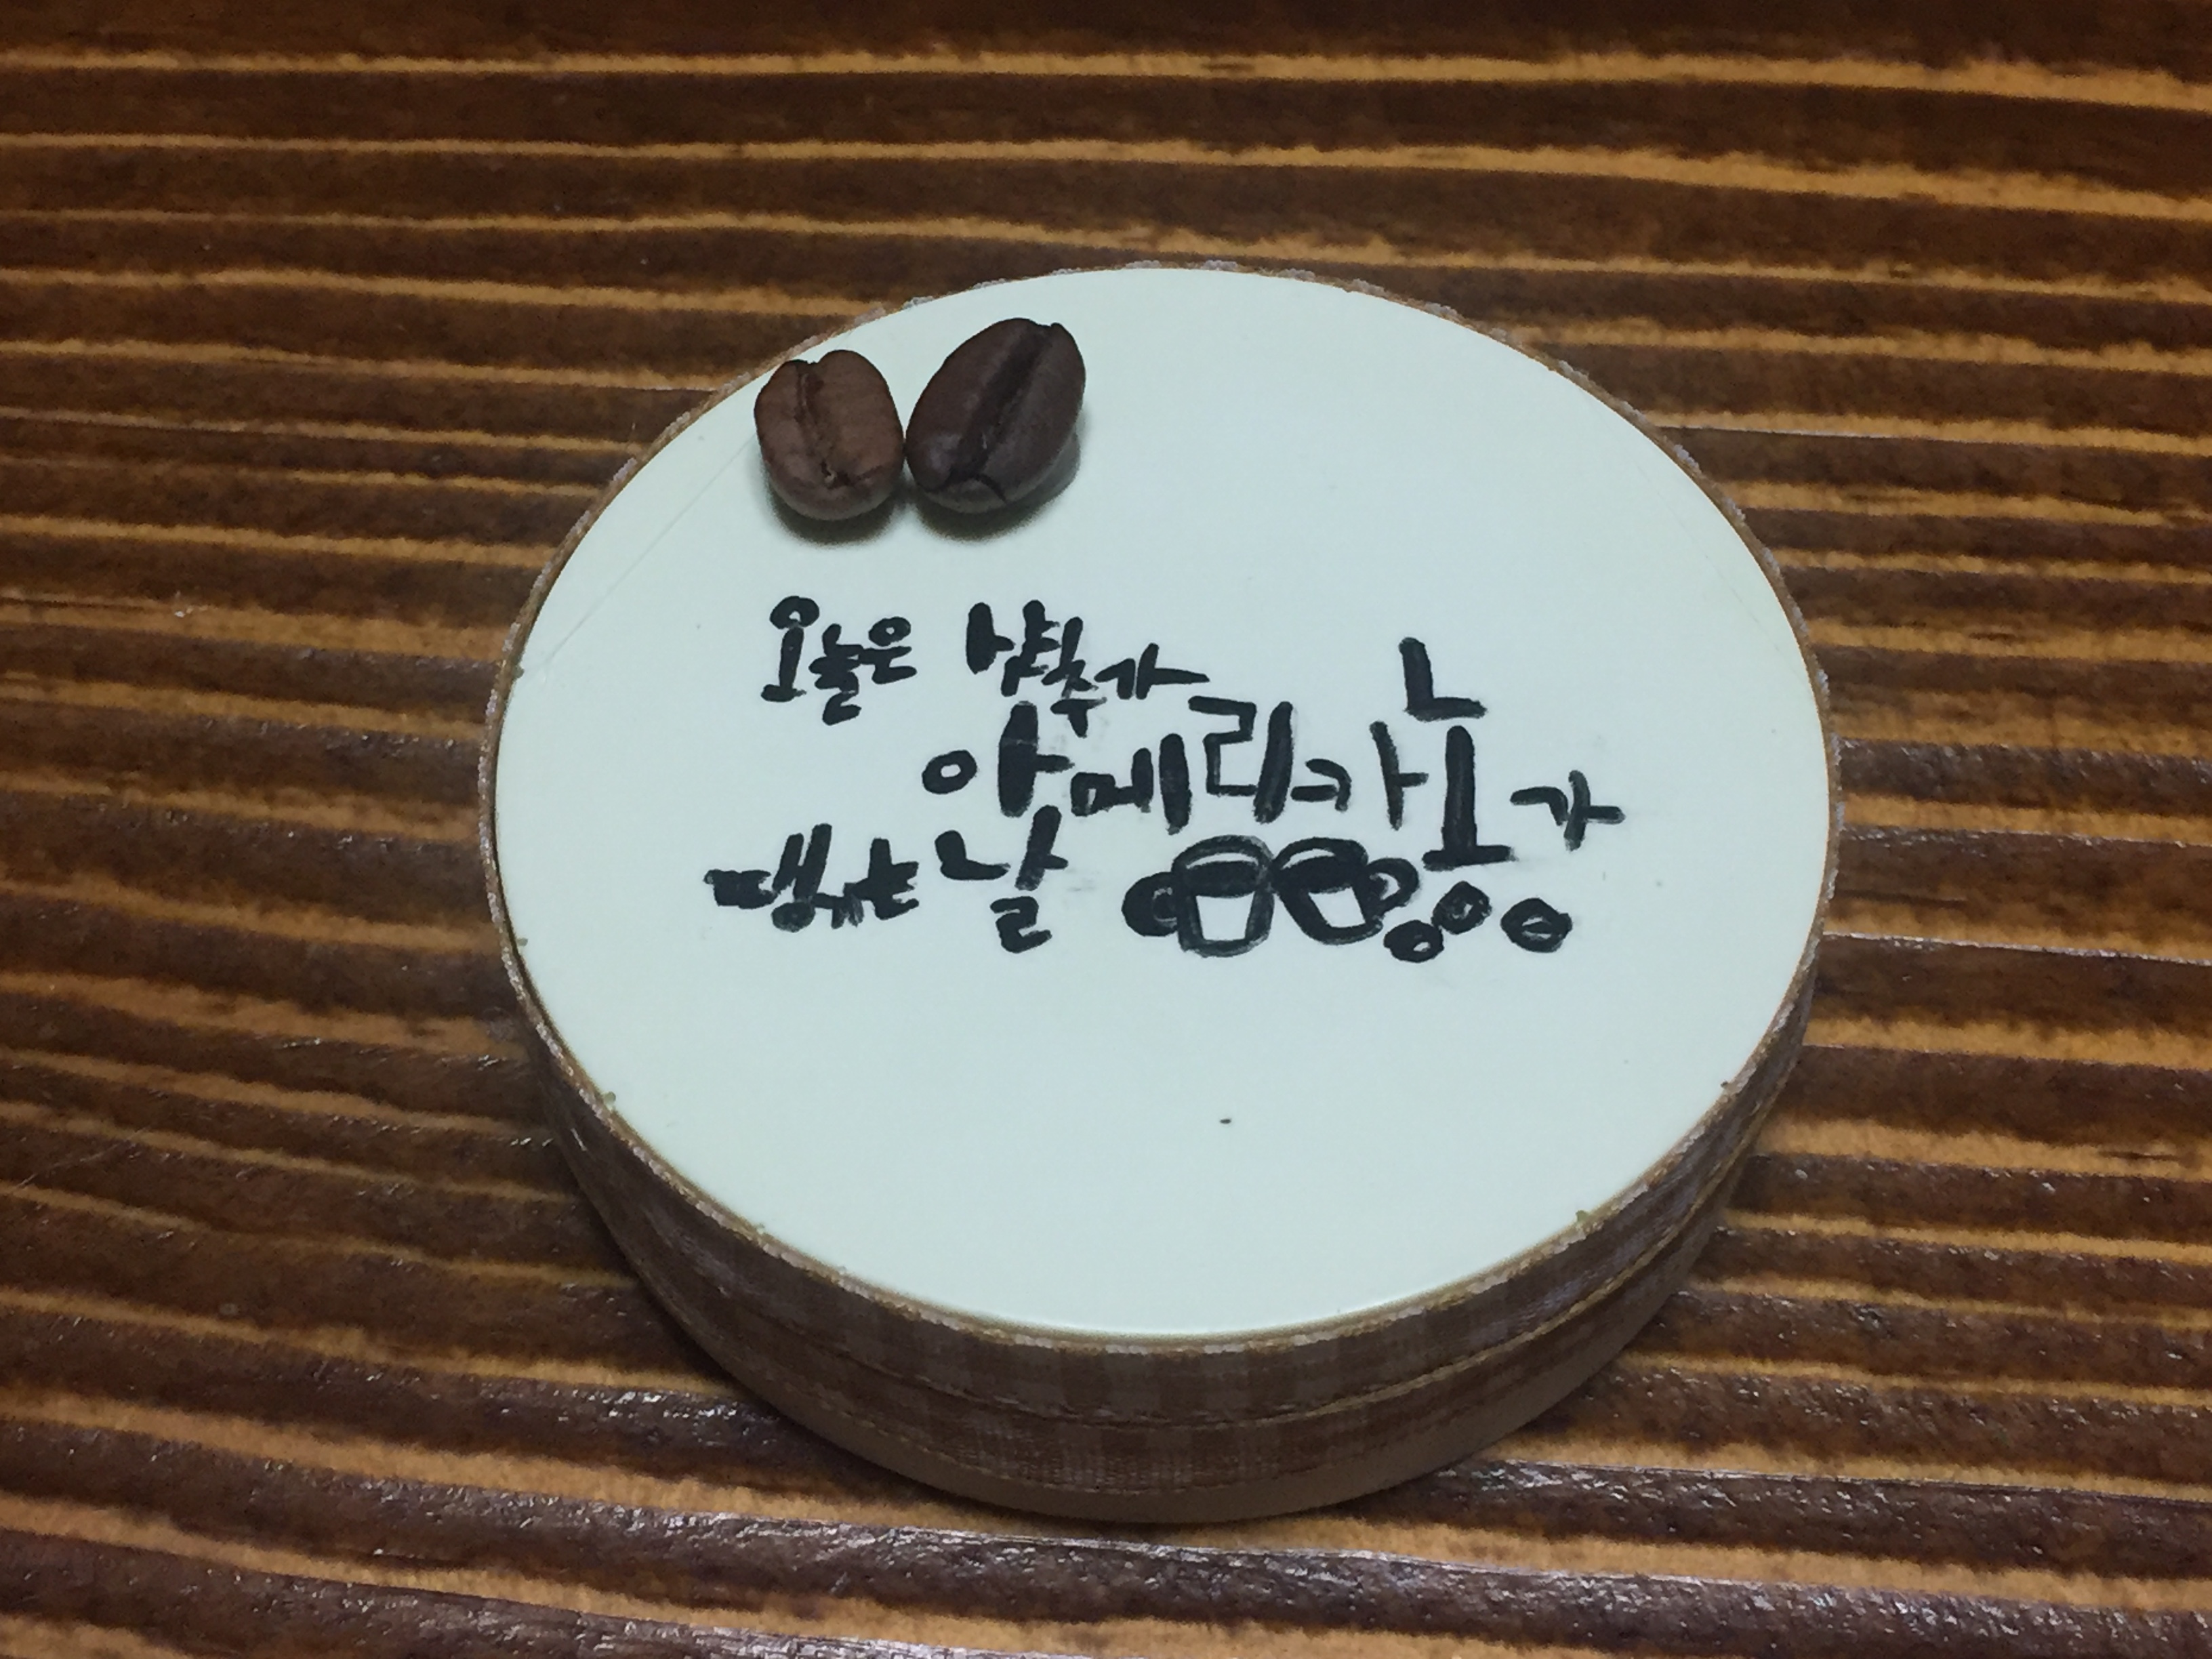 오늘은 샷추가
아메리카노가
땡기는 날